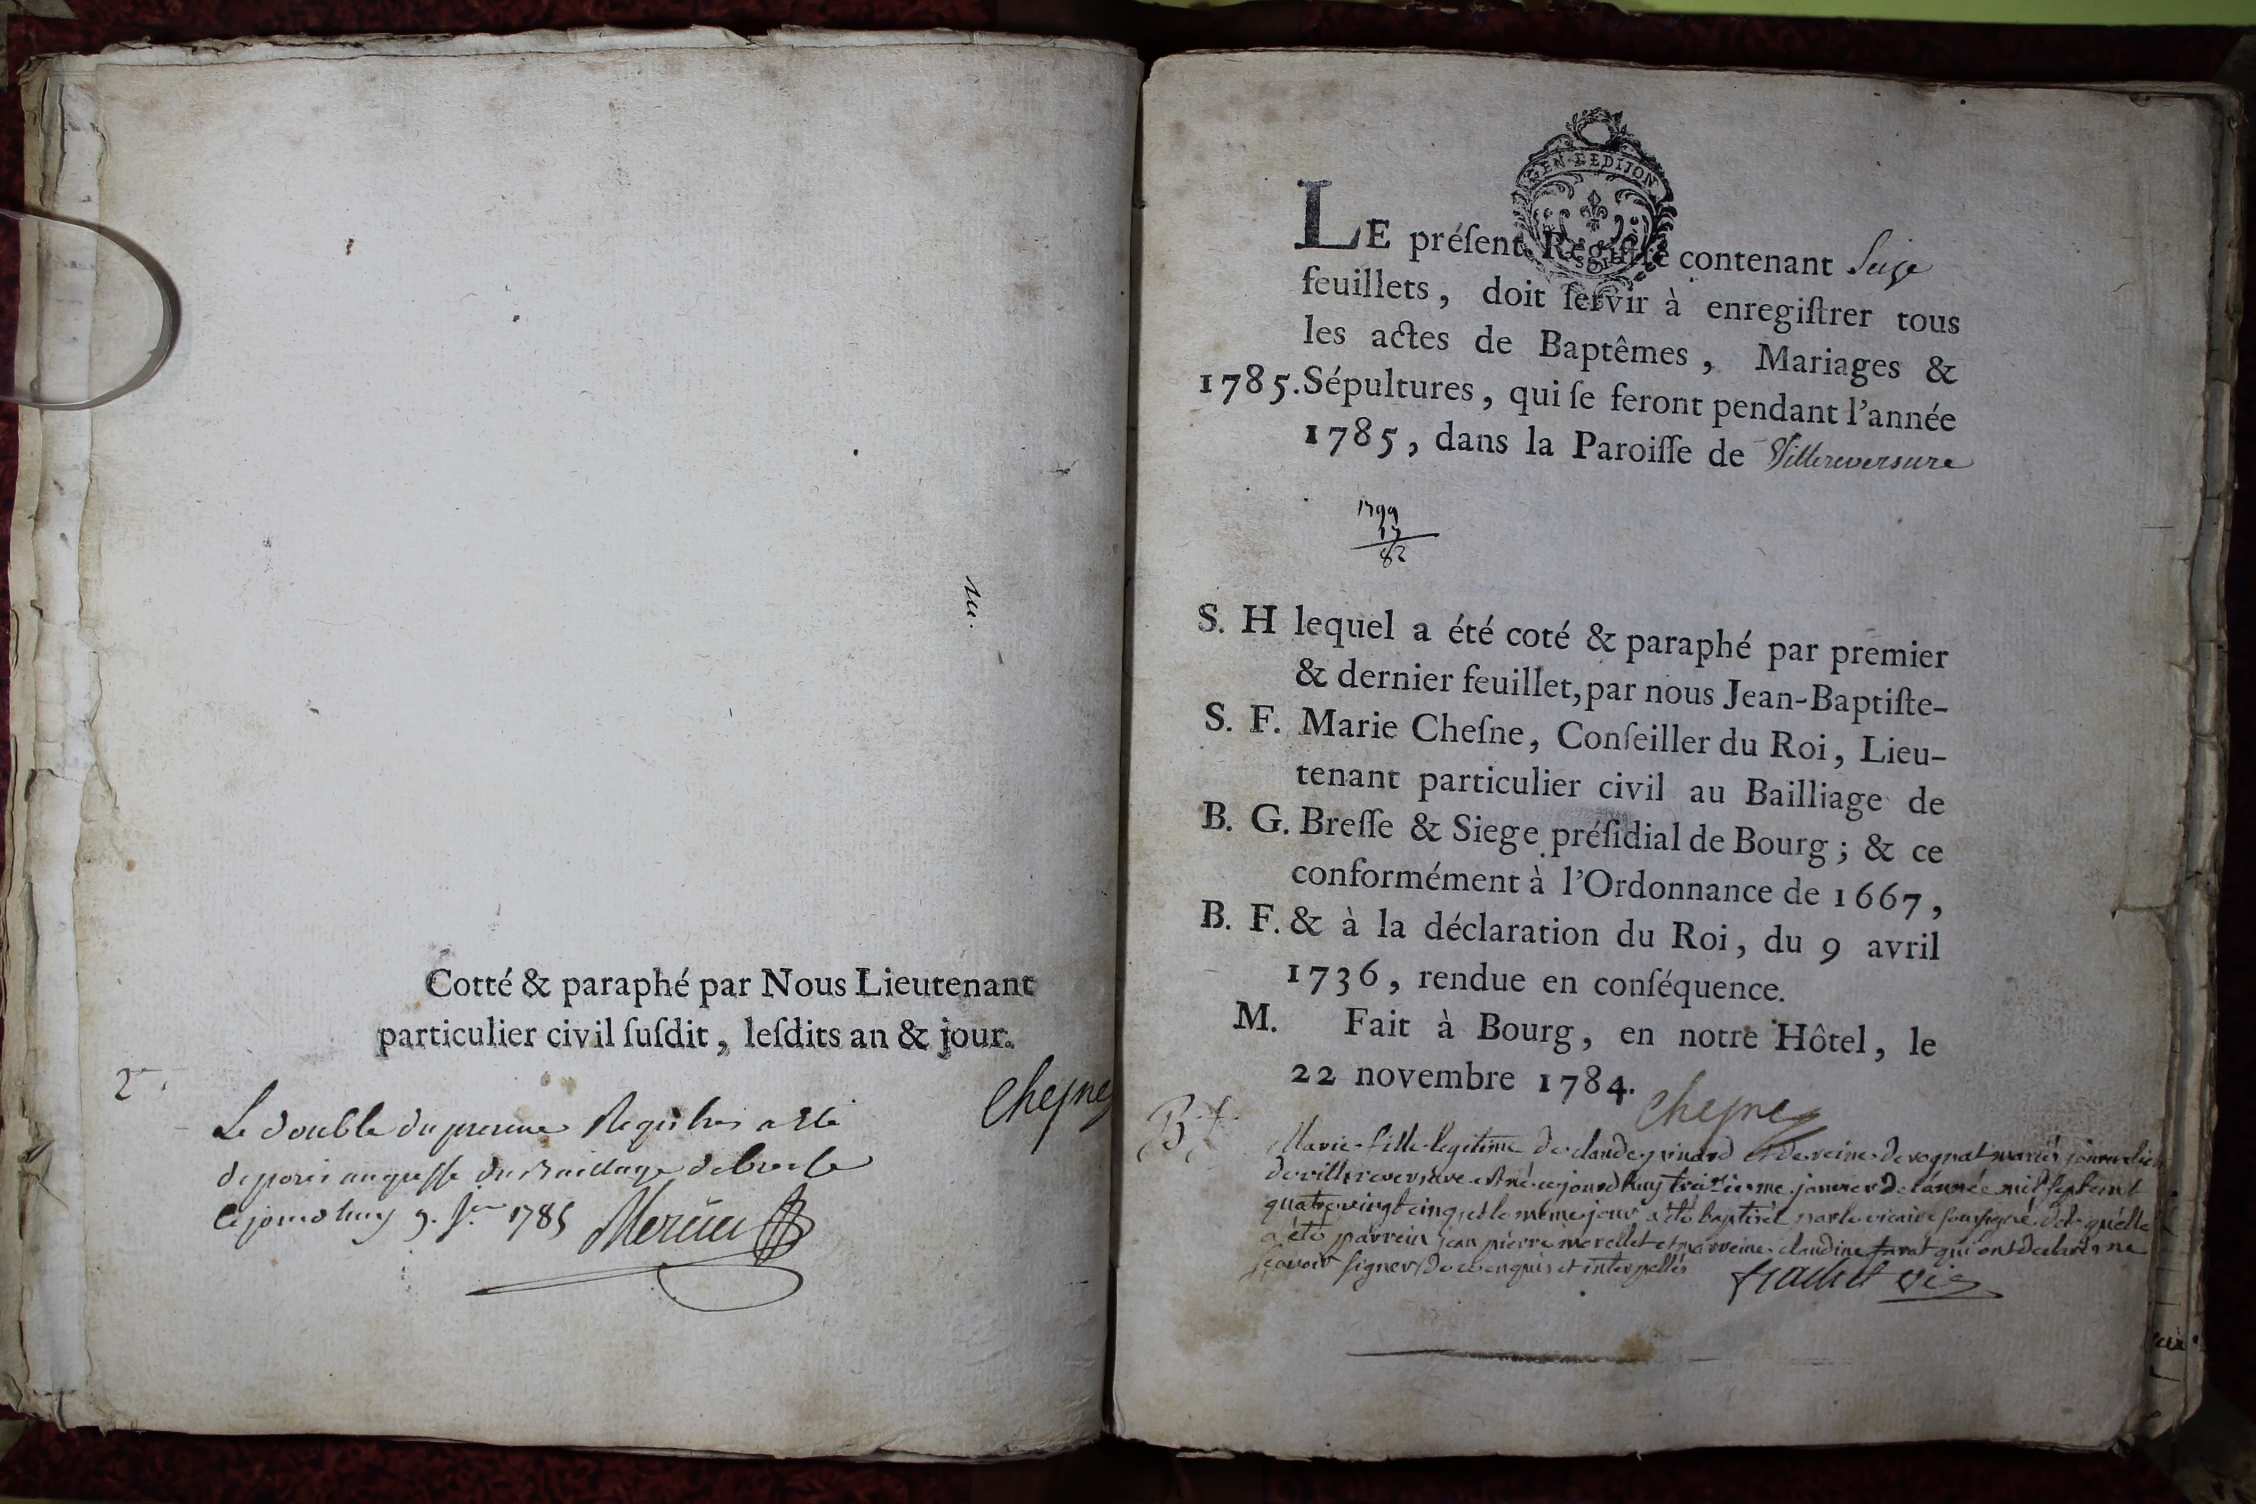 nu.
Cotté & paraphé par Nous Lieutenant
particulier civil ſuſdit, leſdits an & jour.
Cheſne
2
Le double du Registres a eté
au greffe du Bailliage de Bresse
ce jourd'huy 9. 1785 Mercier
GEN·DE DIJON
LE préſent Regiſtre contenant Seize
feuillets, doit ſervir à enregiſtrer tous
les actes de Baptêmes, Mariages &
1785. Sépultures, qui ſe feront pendant l'année
1785, dans la Paroiſſe de Villereversure
1799
17
82
S. H lequel a été coté & paraphé par premier
& dernier feuillet, par nous Jean-Baptiſte-
S. F. Marie Cheſne, Conſeiller du Roi, Lieu-
tenant particulier civil au Bailliage de
B. G. Breſſe & Siege préſidial de Bourg; & ce
conformément à l'Ordonnance de 1667,
B. F. & à la déclaration du Roi, du 9 avril
1736, rendue en conſéquence.
M. Fait à Bourg, en notre Hôtel, le
22 novembre 1784.
Cheſne
B. f. Marie fille legitime de claude et de reine de rognat mariés
de villereversure est né ce jourd'huy treizieme janvier de l'année mil sept cent
quatrevingt cinq et le même jour a été baptisée par le vicaire soussigné de laquelle
a été parrein jean pierre morellet et marreine claudine qui ont declarés ne
sçavoir signer de ce enquis et interpellés